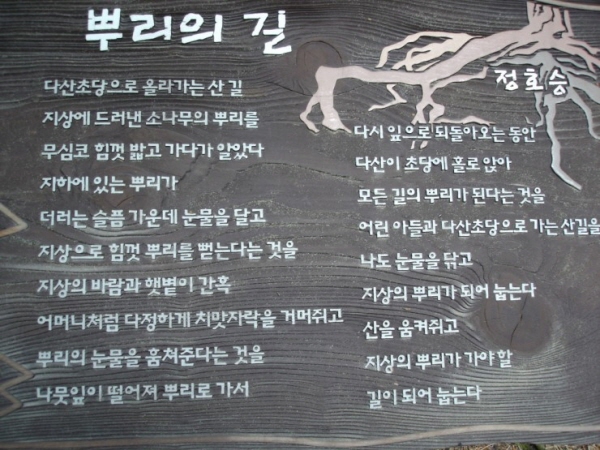 뿌리의 길
정호승
다산초당으로 올라가는 산 길
지상에 드러낸 소나무의 뿌리를
무심코 힘껏 밟고 가다가 알았다
지하에 있는 뿌리가
더러는 슬픔 가운데 눈물을 달고
지상으로 힘껏 뿌리를 뻗는다는 것을
지상의 바람과 햇볕이 간혹
어머니처럼 다정하게 치맛자락을 거머쥐고
뿌리의 눈물을 훔쳐준다는 것을
나뭇잎이 떨어져 뿌리로 가서
다시 잎으로 되돌아오는 동안
다산이 초당에 홀로 앉아
모든 길의 뿌리가 된다는 것을
어린 아들과 다산초당으로 가는 산길을
나도 눈물을 닦고
지상의 뿌리가 되어 눕는다
산을 움켜쥐고
지상의 뿌리가 가야 할
길이 되어 눕는다